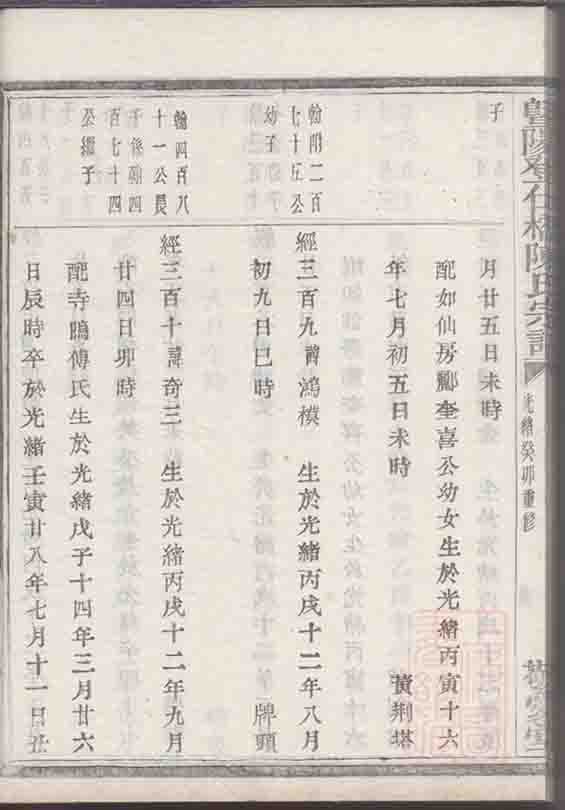 子
月廿五日未時
配如仙房酈奎喜公幼女生於光緒丙寅十六
年七月初五日未時 黃荆塔
翰朋二百
七十五公
幼子
經三百九諱鴻模 生於光緒丙戌十二年八月
初九日巳時 牌頭
翰四百八
十一公長
子後朝四
百七十四
公繼子
經三百十諱奇三 生於光緒丙戌十二年九月
廿四日卯時
配寺塢傅氏生於光緒戊子十四年三月廿六
日辰時卒於光緒壬寅廿八年七月十一日丑
陳氏宗譜
光緒癸卯重修